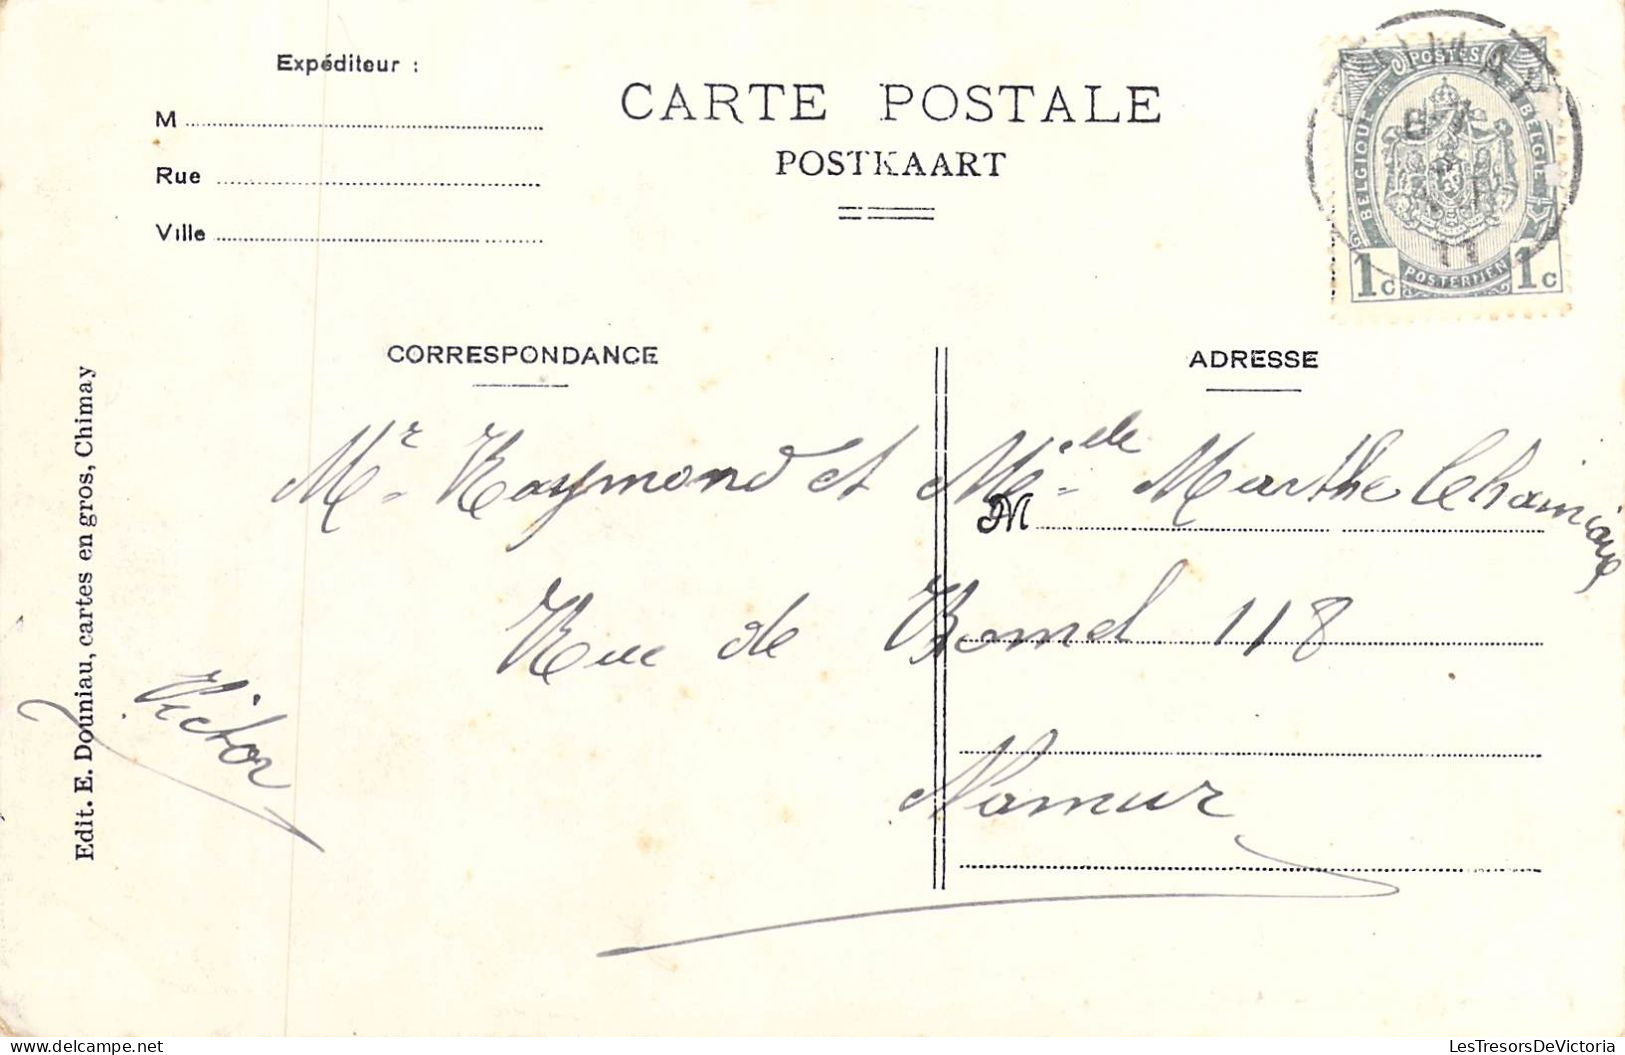 Expéditeur :
M
Rue
Ville
CARTE POSTALE
POSTKAART
CHIMAY
11
POSTES
BELGIQUE
BELGIË
POSTERIJEN
1c 1c
CORRESPONDANCE
ADRESSE
Mr Raymond et Melle Marthe
M
Rue de Bomel 118
Namur
Victor
Edit. E. Douniau, cartes en gros, Chimay
LesTresorsDeVictoria
delcampe.net
LesTresorsDeVictoria